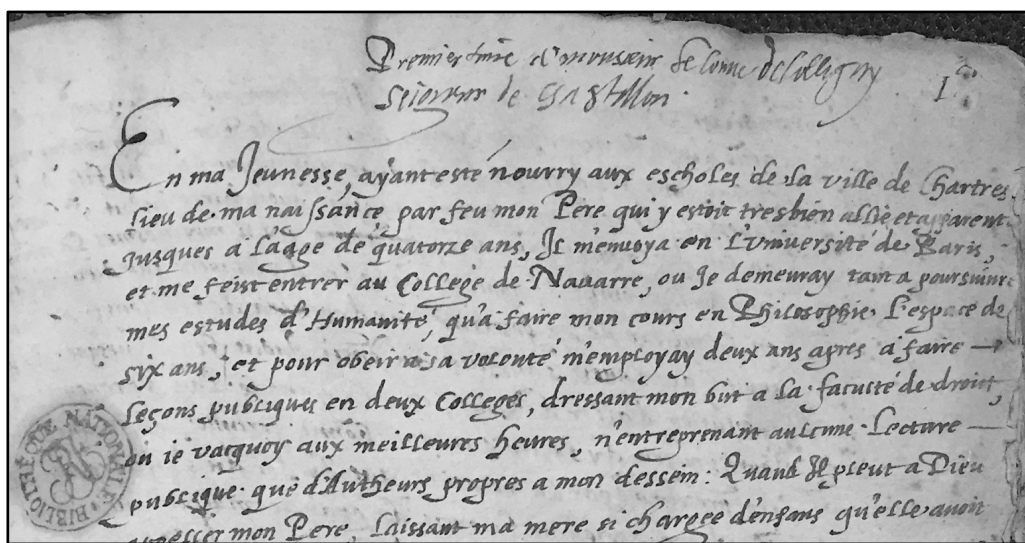 Premier livre de monsieur le Conte de Colligny
Seigneur de Chastillon.
1
En ma Jeunesse, ayant esté nourry aux escholes de la ville de Chartres
lieu de ma naissance par feu mon Pere qui y estoit tresbien allié et apparenté
jusques a l'aage de quatorze ans, Il m'envoya en l'Université de Paris,
et me feist entrer au College de Navarre, ou Je demeuray tant a poursuivre
mes estudes d'Humanité, qu'a faire mon cours en Philosophie l'espace de
six ans, et pour obeir a sa volonté m'employay deux ans apres a faire
leçons publiques en deux Colleges, dressant mon but a la faculté de droit,
ou ie vacquoy aux meilleures heures, n'entreprenant aulcune Lecture
publique que d'Autheurs propres a mon dessein: Quand Il pleut a Dieu
appeller mon Pere, laissant ma mere si chargée d'enfans qu'elle avoit
BIBLIOTHEQUE NATIONALE